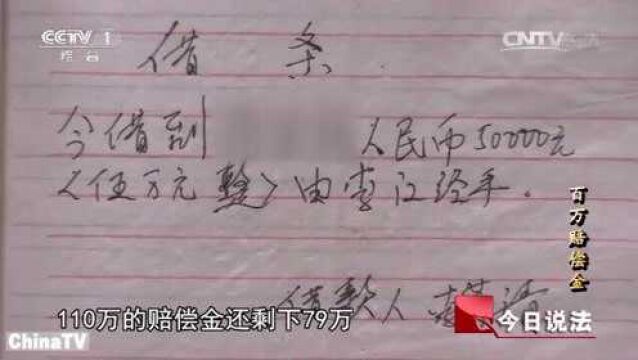 CCTV 1
综合
CNTV
借 条
今借到 人民币50000元
<伍万元整>由李江经手.
借款人
百万赔偿金
110万的赔偿金还剩下79万
今日说法
ChinaTV